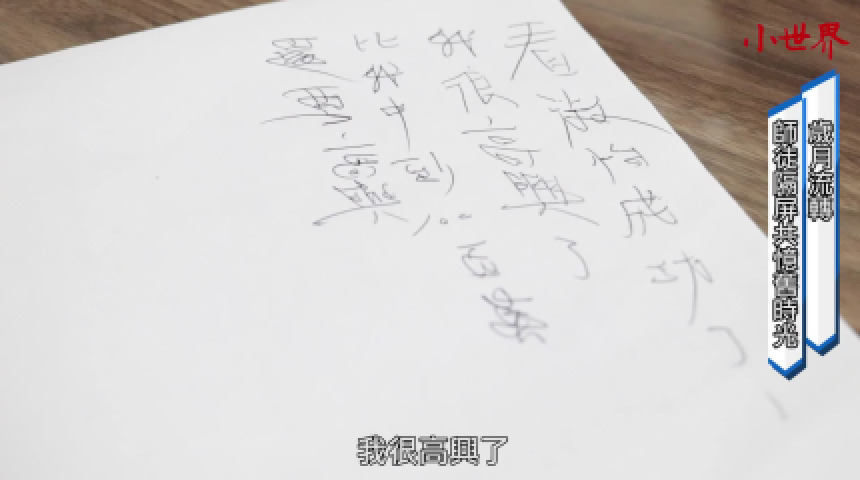 小世界
歲月流轉
師徒隔屏共憶舊時光
看成功了、
我很高興了
比我中
高興
我很高興了